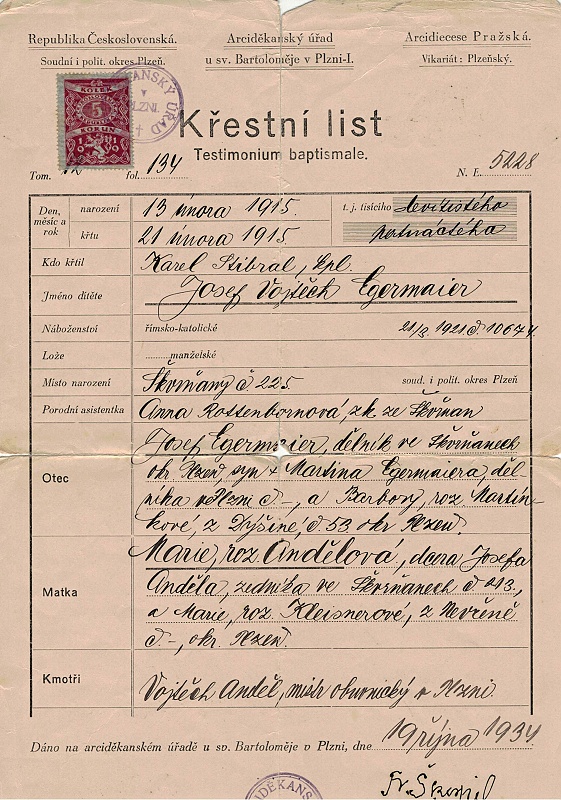 Republika Československá.
Soudní i polit. okres Plzeň.
Arciděkanský úřad
u sv. Bartoloměje v Plzni-I.
Arcidiecese Pražská.
Vikariát: Plzeňský.
KOLEK
5
KORUN
1919
Křestní list
Testimonium baptismale.
Tom. 12 fol. 134 N. E. 5228
Den, měsíc a rok
narození 13 února 1915. t. j. tisícího devítistého
křtu 21 února 1915. patnáctého
Kdo křtil Karel Stibral, kpl.
Jméno dítěte Josef Vojtěch Egermaier
Náboženství římsko-katolické 21/3. 1921 č. 10674.
Lože manželské
Místo narození Škvrňany č 225 soud. i polit. okres Plzeň
Porodní asistentka Anna Rottenbornová, zk. ze Škvrňan
Otec
Josef Egermaier, dělník ve Škvrňanech
okr. Plzeň, syn + Martina Egermaiera, děl-
níka v Plzni č –, a Barbory, roz. Martín-
kové, z Dýšiné, č 53 okr Plzeň.
Matka
Marie, roz. Andělová, dcera Josefa
Anděla, zedníka ve Škvrňanech č 213.,
a Marie, roz. Kleisnerové, z
č. –, okr. Plzeň.
Kmotři
Vojtěch Anděl, mistr obuvnický v Plzni.
Dáno na arciděkanském úřadě u sv. Bartoloměje v Plzni, dne 19 října 1934